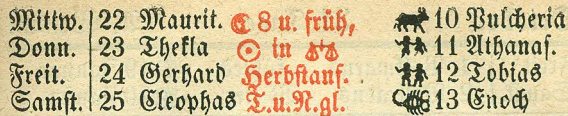 Mittw. 22 Maurit. ☾ 8 u. früh, ♉ 10 Pulcheria
Donn. 23 Thekla ☉ in ♎ ♊ 11 Athanas.
Freit. 24 Gerhard Herbstanf. ♊ 12 Tobias
Samst. 25 Cleophas T.u.N.gl. ♋ 13 Enoch